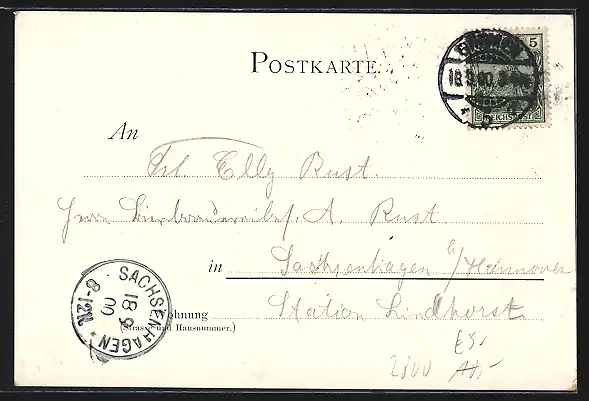 POSTKARTE.
5
18.9.00.
REICHSPOST
An
Frl. Elly Rust.
Herrn Bierbrauereibes. A. Rust
in Sachsenhagen b/Hannover
Station Lindhorst
Wohnung
(Strasse und Hausnummer.)
SACHSENHAGEN
18 9
00
8-12V.
2800